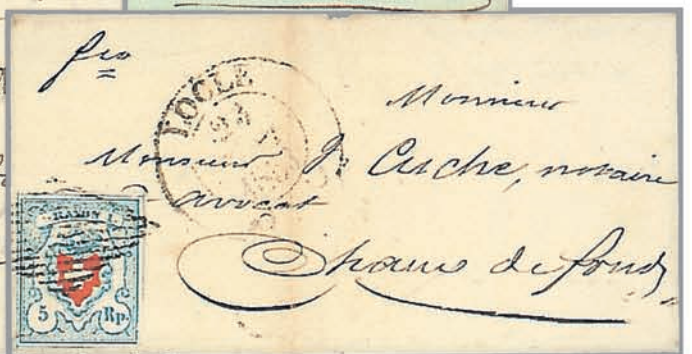 fco
LOCLE
Monsieur
Monsieur Cuche, notaire
avocat
Chaux de fonds
RAYON I.
5 Rp.